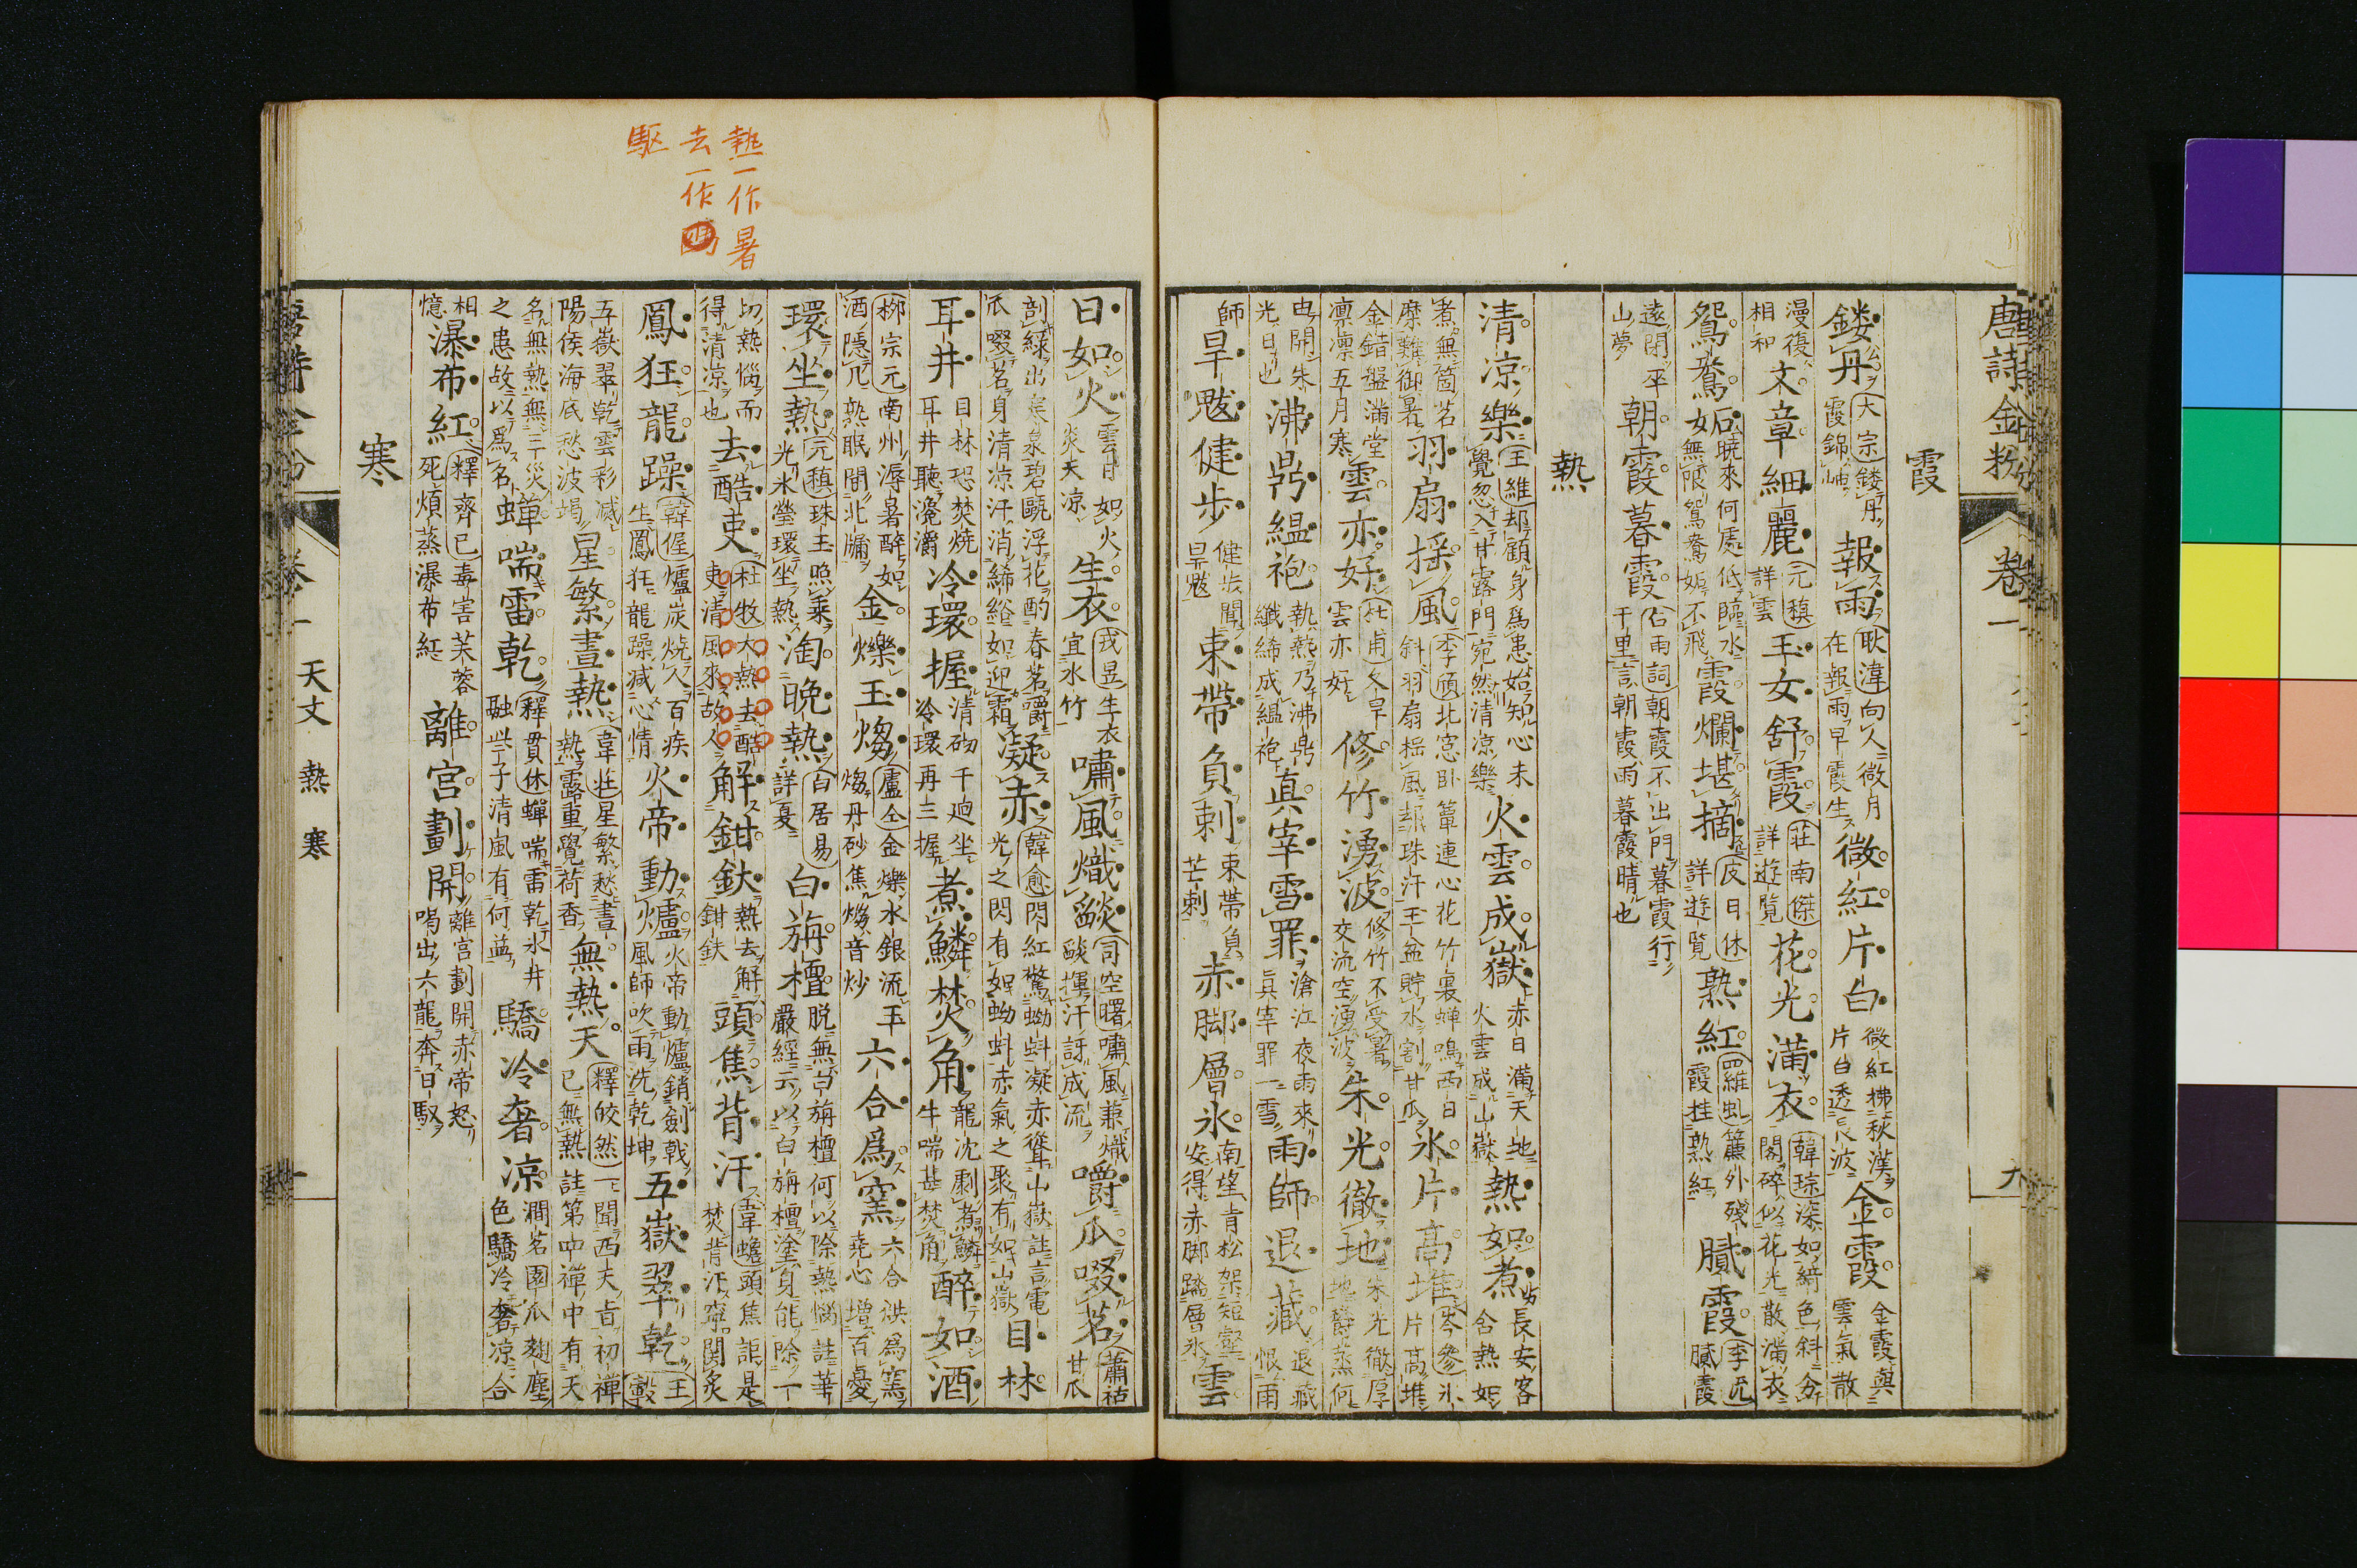 唐詩金粉 卷一 九
霞
鏤丹 大宗鏤丹霞錦岫 報雨 耿湋向人微月在報雨早霞生 微紅片白 微紅拂秋漢片白透長波 金霞 金霞與雲氣散
漫復相和 文章細麗 元稹詳雲 玉女舒霞 莊南傑詳遊覽 花光滿衣 韓琮深如綺色斜分閣碎似花光散滿衣
鴛鴦妬 曉來何處低臨水無限鴛鴦妬不飛 霞爛堪摘 皮日休詳遊覽 熟紅 羅虬簾外殘霞挂熟紅 膩霞 李咸膩霞
遠閉巫山夢 朝霞暮霞 占雨詞朝霞不出門暮霞行千里言朝霞雨暮霞晴也
熱
清凉樂 王維却顧身爲患始知心未覺忽入甘露門宛然清凉樂 火雲成嶽 赤日滿天地火雲成山嶽 熱如煮 長安客舍熱如
煮無箇茗糜難御暑 羽扇揺風 李頎北窓卧簟連心花竹裏蟬鳴西日斜羽扇揺風却珠汗玉盆貯水割甘瓜 氷片高堆 岑參氷片高堆
金錯盤滿堂凛凛五月寒 雲亦好 杜甫久旱雲亦好 修竹湧波 修竹不受暑交流空湧波 朱光徹地 朱光徹厚地鬱蒸何
由開朱光日也 沸鼎緼袍 執熱乃沸鼎纖絺成緼袍 真宰雪罪 滄江夜雨來真宰罪一雪 雨師退藏 退藏恨雨
師 旱魃健步 健步聞旱魃 束帶負刺 束帶負芒刺 赤脚層氷 南望青松架短壑安得赤脚踏層氷 雲
日如火 雲日如火炎天凉 生衣 戎昱生衣宜水竹 嘯風熾燄 司空曙嘯風兼熾燄揮汗訝成流 嚼瓜啜茗 蕭祜甘瓜
剖綠出寒泉碧甌浮花酌春茗嚼瓜啜茗身清凉汗消絺綌如迎霜 凝赤 韓愈閃紅驚蚴虯凝赤聳山嶽註言電光之閃有如蚴虯赤氣之聚有如山嶽 目林
耳井 目林恐焚燒耳井聽瀺灂 冷環握 清砌千廻坐冷環再三握 煮鱗焚角 龍沈劇煮鱗牛喘甚焚角 醉如酒
柳宗元南州溽暑醉如酒隱几熟眠開北牖 金爍玉煼 盧仝金爍水銀流玉煼丹砂焦煼音炒 六合爲窯 六合烘爲窯堯心増百憂
環坐熱 元稹珠玉照乘光氷瑩環坐熱 淘晚熱 白居易詳夏 白旃檀 脱無白旃檀何以除熱惱註華嚴經云以白旃檀塗身能除一
切熱惱而得清凉也 去酷吏 杜牧大熱去酷吏清風來故人 解鉗釱 熱去解鉗釱 頭焦背汗 韋蟾頭焦詎是焚背汗寧關炙
鳳狂龍躁 韓偓爐炭燒人百疾生鳳狂龍躁減心情 火帝動爐 火帝動爐銷劍戟風師吹雨洗乾坤 五嶽翠乾 王轂
五嶽翠乾雲彩滅陽侯海底愁波竭 星繁晝熱 韋莊星繁愁晝熱露重覺荷香 無熱天 釋皎然一聞西天旨初禪已無熱註第四禪中有天
名無熱無三災之患故以爲名 蟬喘雷乾 釋貫休蟬喘雷乾氷井融些子清風有何益 驕冷奢凉 澗茗園瓜麹塵色驕冷奢凉合
相憶 瀑布紅 釋齊己毒害芙蓉死煩蒸瀑布紅 離宮劃開 離宮劃開赤帝怒喝出六龍奔日馭
寒
天文 熱 寒
熱一作暑
去一作
駆